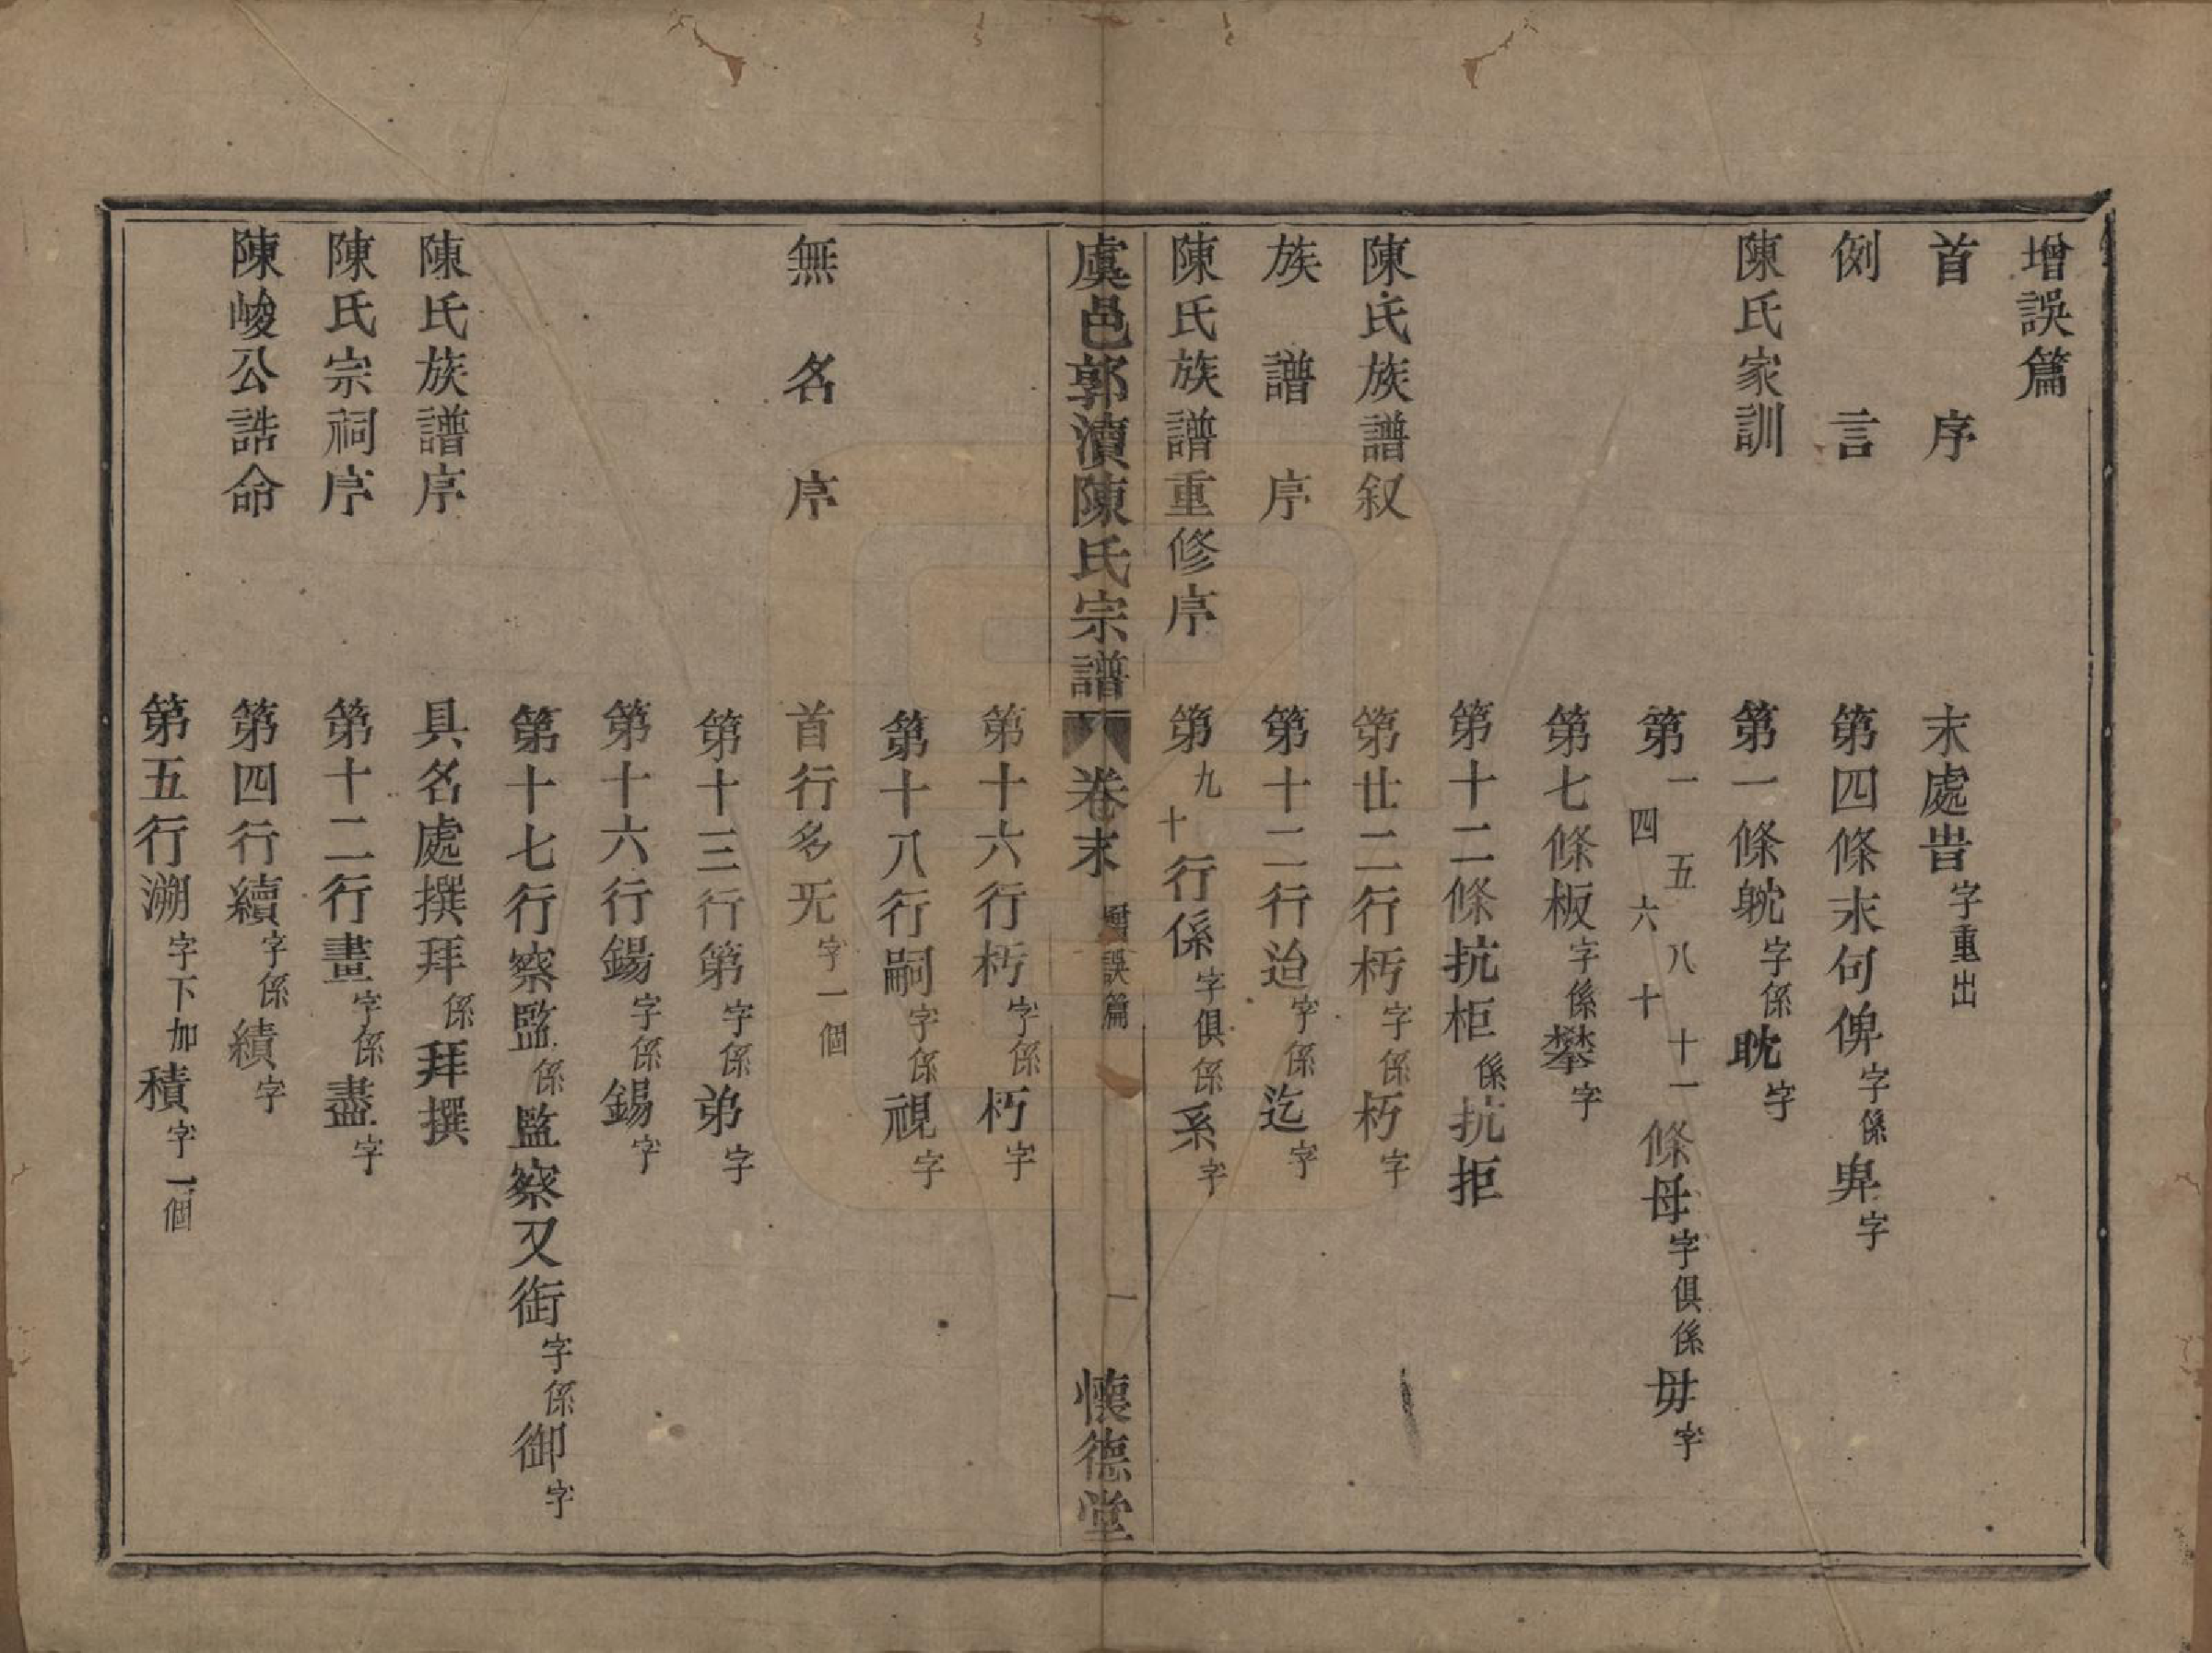 增誤篇
首序　末處旹字重出
例言　第四條末句俾字係卑字
陳氏家訓　第一條躭字係耽字
第一四五六八十十一條母字俱係毋字
第七條板字係攀字
第十二條抗柜係抗拒
陳氏族譜叙　第廿二行杇字係朽字
族譜序　第十二行迨字係迄字
陳氏族譜重修序　第九十行係字俱係系字
虞邑郭瀆陳氏宗譜　卷末　增誤篇　一　懷德堂
第十六行杇字係朽字
第十八行嗣字係視字
無名序　首行多旡字一個
第十三行第字係弟字
第十六行鍚字係錫字
第十七行察監係監察又衘字係御字
陳氏族譜序　具名處撰拜係拜撰
陳氏宗祠序　第十二行畫字係盡字
陳峻公誥命　第四行續字係績字
第五行溯字下加積字一個